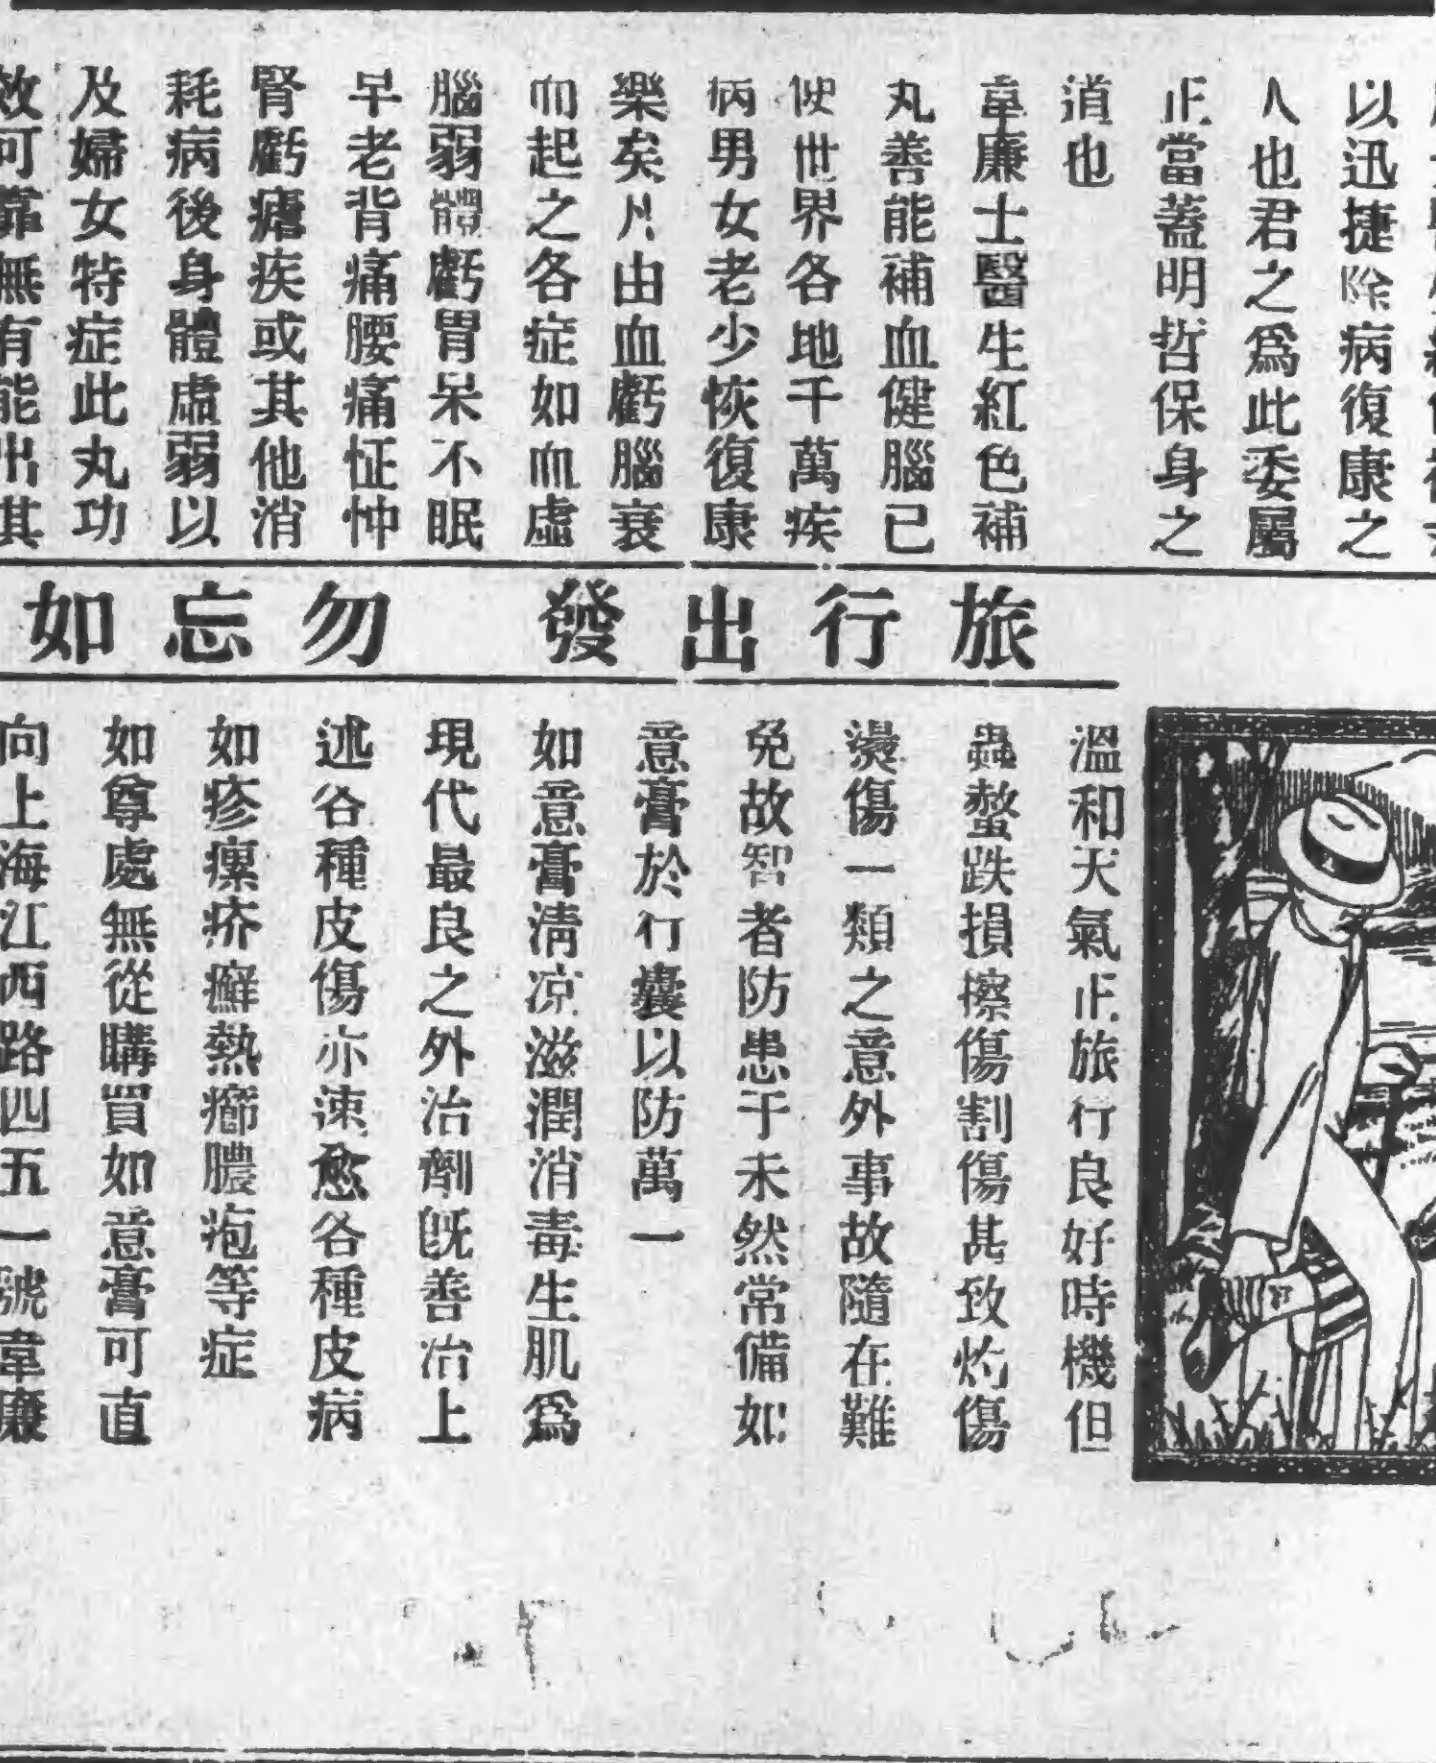 以迅捷除病復康之
人也君之爲此委屬
正當蓋明哲保身之
道也
韋廉士醫生紅色補
丸善能補血健腦已
使世界各地千萬疾
病男女老少恢復康
樂矣凡由血虧腦衰
而起之各症如血虛
腦弱體虧胃呆不眠
早老背痛腰痛怔忡
腎虧瘧疾或其他消
耗病後身體虛弱以
及婦女特症此丸功
效可靠無有能出其
旅行出發 勿忘如
溫和天氣正旅行良好時機但
蟲螫跌損擦傷割傷甚致灼傷
燙傷一類之意外事故隨在難
免故智者防患于未然常備如
意膏於行囊以防萬一
如意膏清凉滋潤消毒生肌爲
現代最良之外治劑旣善治上
述各種皮傷亦速愈各種皮病
如疹瘰疥癬熱癤膿疱等症
如尊處無從購買如意膏可直
向上海江西路四五一號韋廉